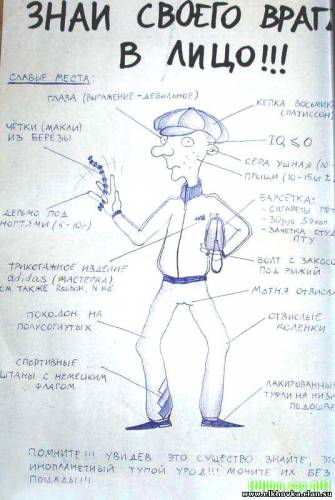 ЗНАЙ СВОЕГО ВРАГ
В ЛИЦО!!!
СЛАБЫЕ МЕСТА:
ГЛАЗА (ВЫРАЖЕНИЕ - ДЕБИЛЬНОЕ)
КЕПКА ВОСЬМИК
(ПАТИССОН)
ЧЁТКИ (МАКЛИ)
ИЗ БЕРЁЗЫ
IQ ≤ 0
СЕРА УШНАЯ (10-
ПРЫЩИ (10-15шт
БАРСЕТКА:
- СИГАРЕТЫ
- 30 руб 59 коп
- ЗАЧЕТКА СТУД
ПТУ
ДЕРЬМО ПОД
НОГТЯМИ (5-10-)
ТРИКОТАЖНОЕ ИЗДЕЛИЕ
adidas (МАСТЕРКА)
СМ. ТАКЖЕ Reebok, N
БОЛТ С ЗАКОС
ПОД РЫЖИЙ
МОТНЯ ОТВИСЛА
ПОХОДОН НА
ПОЛУСОГНУТЫХ
ОТВИСЛЫЕ
КОЛЕНКИ
СПОРТИВНЫЕ
ШТАНЫ С НЕМЕЦКИМ
ФЛАГОМ
ЛАКИРОВАННЫ
ТУФЛИ НА НИЗ
ПОДОШВЕ
ПОМНИТЕ!!! УВИДЕВ ЭТО СУЩЕСТВО ЗНАЙТЕ, ЭТ
ИНОПЛАНЕТНЫЙ ТУПОЙ УРОД!!! МОЧИТЕ ИХ БЕЗ
ПОЩАДЫ!!!